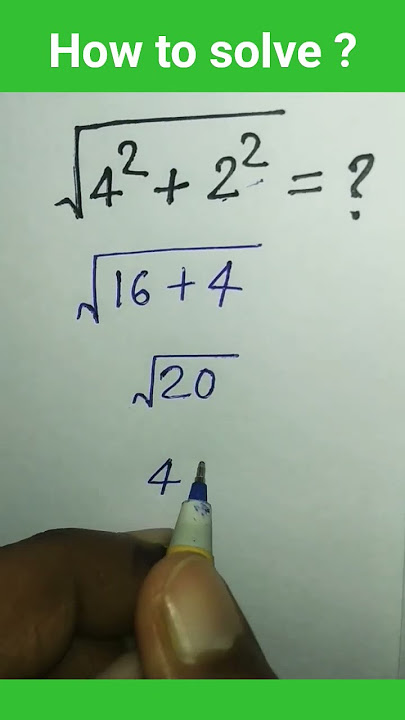 How to solve ?
√4² + 2² = ?
√16 + 4
√20
4